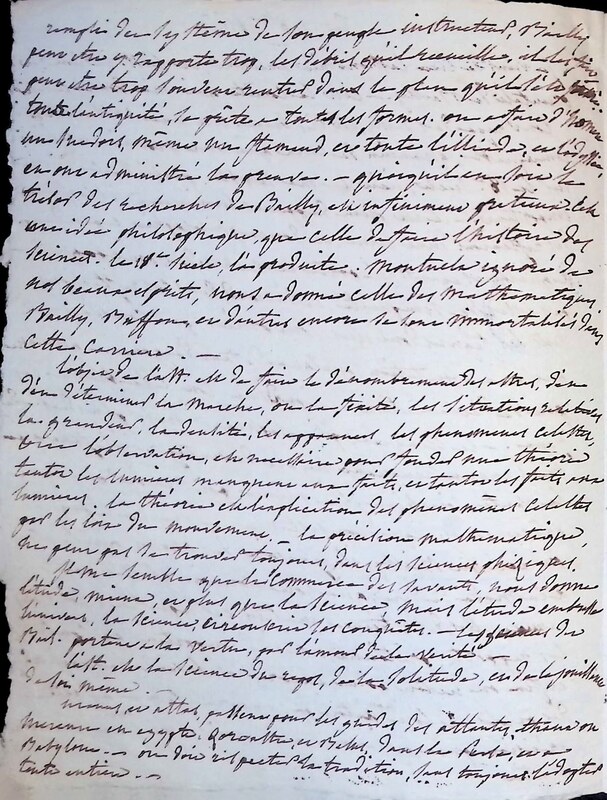 rempli de système de son peuple instructeur, Bailly
peut etre y rapporte trop, les débris qu'il recueille, il les fait
peut etre trop souvent rentrer dans le plan qu'il s'est
toute l'antiquité, se prête a toutes les formes. on a fait d'Homere
un medor, même un flamand, et toute l'illiade, et l'odyssée
en ont administré la preuve. — quoiqu'il en soit le
trésor des recherches de Bailly, est infiniment précieux. C'est
une idée philosophique, que celle de faire l'histoire des
sciences. le 18me siecle, l'a produite. Montucla ignoré de
nos beaux esprits, nous a donné celle des mathematiques,
Bailly, Buffon, et d'autres encore se sont immortalisés dans
cette carriere. —
l'objet de l'ast. est de faire le dénombrement des astres, d'en
d'en déterminer la marche, ou la fixité, les situations relatives
la grandeur, la densité, les apparences les phenomenes celestes,
l'observation, est necessaire pour fonder une théorie
tantot les lumieres manquent aux faits, et tantot les faits aux
lumieres. la théorie est l'explication des phenomènes celestes
par les loix du mouvement. — la précision mathematique,
ne peut pas se trouver toujours, dans les sciences phisiques.
il me semble que le commerce des savants, nous donne
l'étude, mieux, et plus que la science, mais l'étude embrasse
l'univers, la science circonscrit ses conquêtes. — les sciences de
Bail. portent a la vertu, par l'amour de la verité —
l'ast. est la science du repos, de la solitude, et de la jouissance
de soi même.
uranus et atlas, passent pour les guides des atlantes, thaut ou
mercure en egypte zoroastre, et Belus, dans la Perse, et a
Babylone. — on doit respecter la tradition, sans toujours l'adopter
toute entiere. —